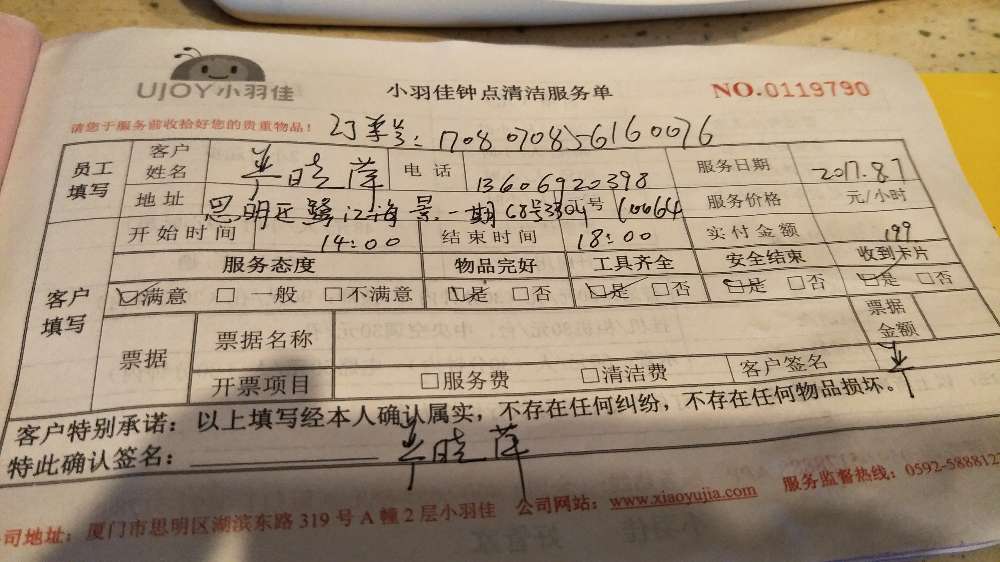 UJOY小羽佳
小羽佳钟点清洁服务单
NO.0119790
请您于服务前收拾好您的贵重物品！
订单号：1708070856160076
员工填写 客户姓名 晓萍 电话 13606920398 服务日期 2017.8.7
地址 思明区鹭江海景一期68号3304 号 100664 服务价格 元/小时
客户填写 开始时间 14:00 结束时间 18:00 实付金额 199
服务态度 物品完好 工具齐全 安全结束 收到卡片
☑满意 □一般 □不满意 ☑是 □否 ☑是 □否 ☑是 □否 ☑是 □否
票据 票据名称 票据金额
开票项目 □服务费 □清洁费 客户签名
客户特别承诺：以上填写经本人确认属实，不存在任何纠纷，不存在任何物品损坏。
特此确认签名： 晓萍
司地址：厦门市思明区湖滨东路319号A幢2层小羽佳 公司网站：www.xiaoyujia.com 服务监督热线：0592-5888812